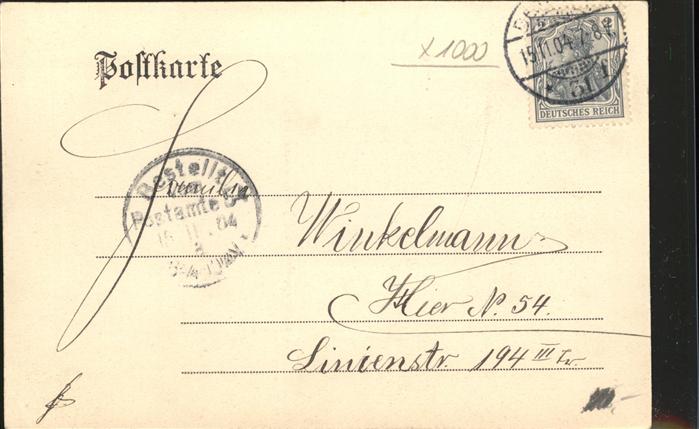 Postkarte
x1000
15.11.04. 7-8
2
DEUTSCHES REICH
Bestellt
Postamte
15 11. 04
Familie
Winkelmann
Hier N. 54.
Linienstr. 194 III Tr.